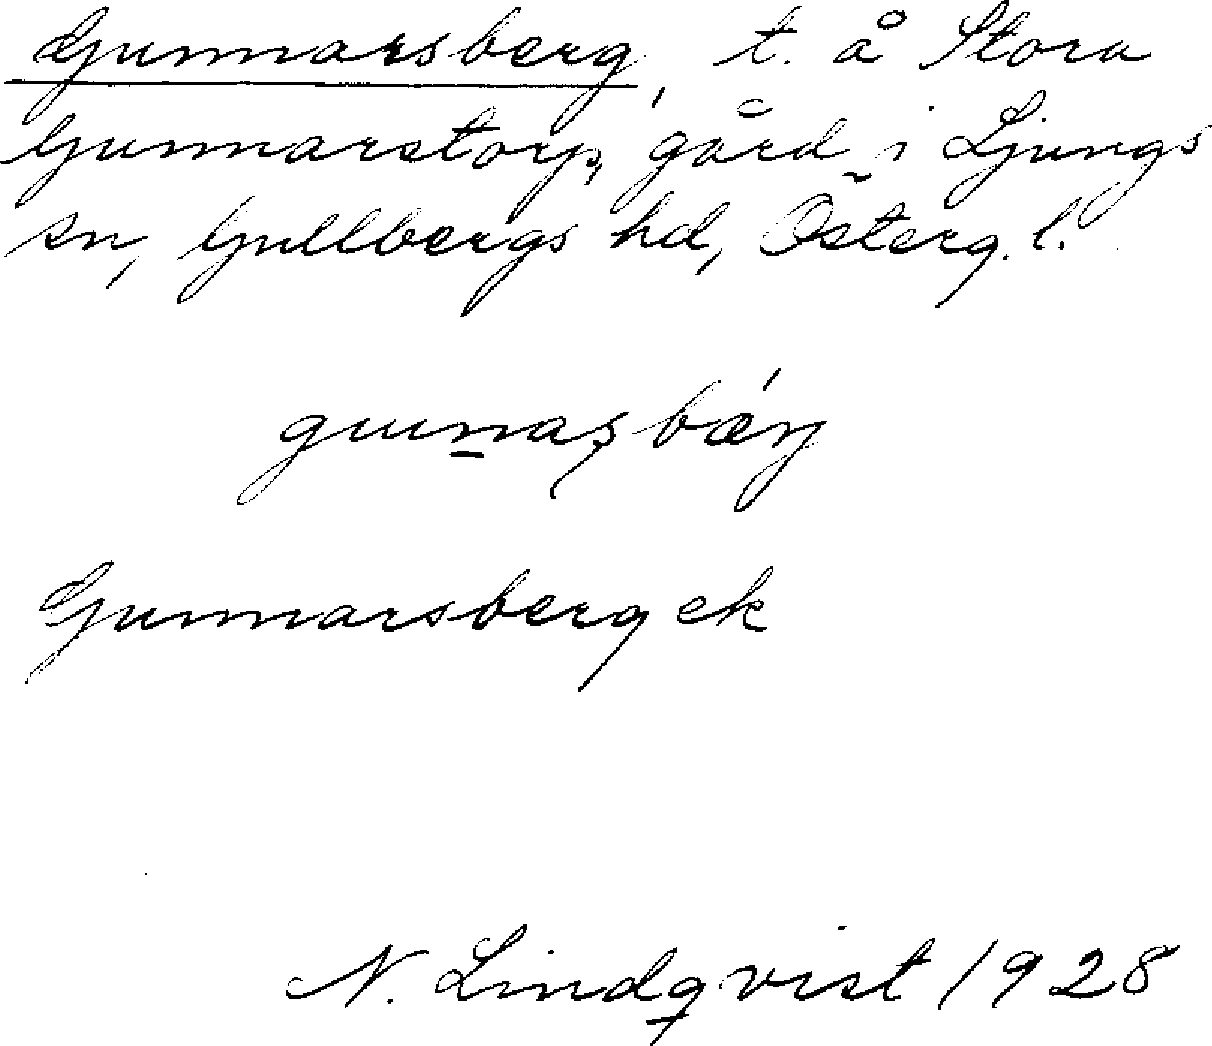 Gunnarsberg, t. å Stora
Gunnarstorp, gård i Ljungs
sn, Gullbergs hd, Österg. l.
Gunnarsberg ek
N. Lindqvist 1928